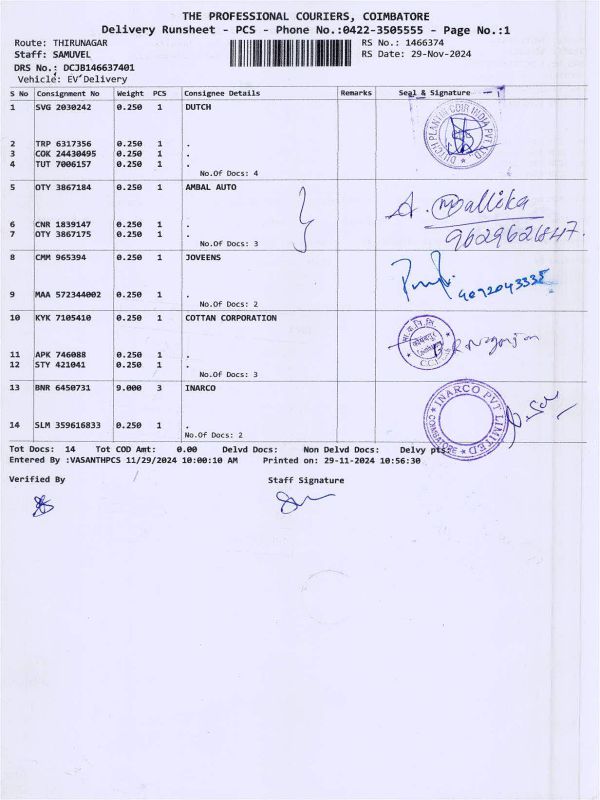 THE PROFESSIONAL COURIERS, COIMBATORE
Delivery Runsheet - PCS - Phone No.:0422-3505555 - Page No.:1
Route: THIRUNAGAR
RS No.: 1466374
Staff: SAMUVEL
RS Date: 29-Nov-2024
DRS No.: DCJB146637401
Vehicle: EV Delivery
S No Consignment No Weight PCS Consignee Details Remarks Seal & Signature
1 SVG 2030242 0.250 1 DUTCH
2 TRP 6317356 0.250 1 .
3 COK 24430495 0.250 1 .
4 TUT 7006157 0.250 1 .
No.Of Docs: 4
5 OTY 3867184 0.250 1 AMBAL AUTO
A. Mallika
6 CNR 1839147 0.250 1 .
7 OTY 3867175 0.250 1 .
No.Of Docs: 3
8 CMM 965394 0.250 1 JOVEENS
9 MAA 572344002 0.250 1 .
No.Of Docs: 2
10 KYK 7105410 0.250 1 COTTAN CORPORATION
11 APK 746088 0.250 1 .
12 STY 421041 0.250 1 .
No.Of Docs: 3
13 BNR 6450731 9.000 3 INARCO
INARCO PVT LIMITED
14 SLM 359616833 0.250 1 .
No.Of Docs: 2
Tot Docs: 14 Tot COD Amt: 0.00 Delvd Docs: Non Delvd Docs: Delvy pts:
Entered By :VASANTHPCS 11/29/2024 10:00:10 AM Printed on: 29-11-2024 10:56:30
Verified By Staff Signature